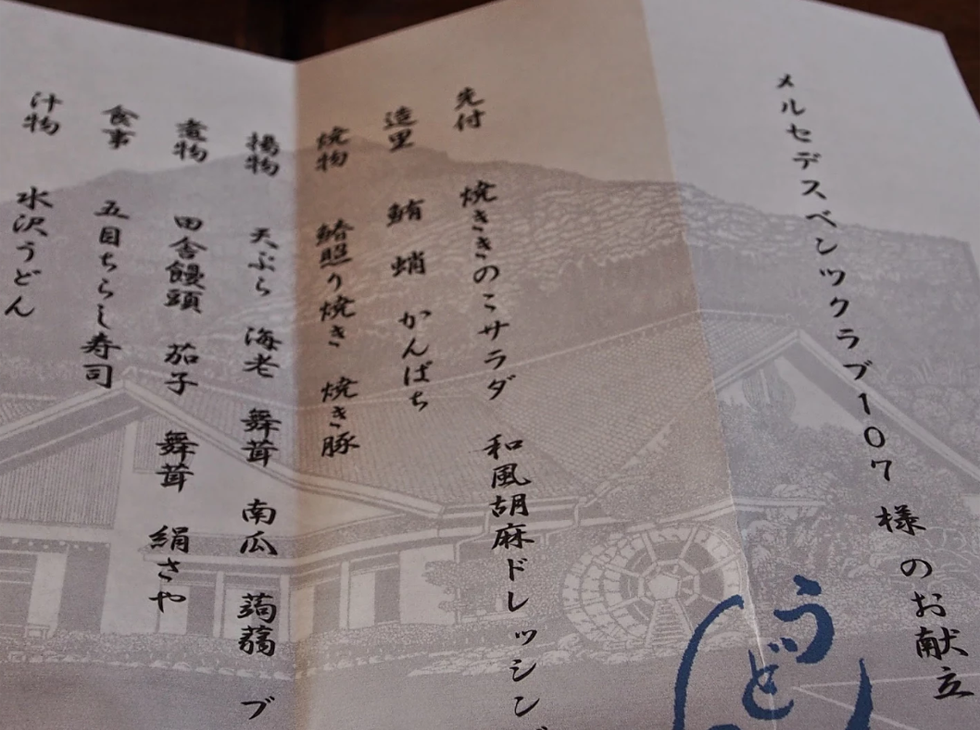 メルセデスベンツクラブ107 様 のお献立
先付 焼ききのこサラダ 和風胡麻ドレッシング
造里 鮪 蛸 かんぱち
焼物 鰆照り焼き 焼き豚
揚物 天ぷら 海老 舞茸 南瓜 蒟蒻 ブ
煮物 田舎饅頭 茄子 舞茸 絹さや
食事 五目ちらし寿司
汁物 水沢うどん
うど